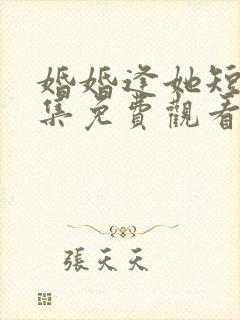 婚婚逢她短
集免費觀看
張天天